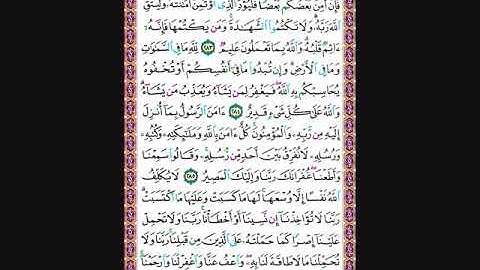 فَإِنْ أَمِنَ بَعْضُكُم بَعْضًا فَلْيُؤَدِّ الَّذِي اؤْتُمِنَ أَمَٰنَتَهُۥ وَلْيَتَّقِ
اللَّهَ رَبَّهُۥ ۗ وَلَا تَكْتُمُوا الشَّهَٰدَةَ ۚ وَمَن يَكْتُمْهَا فَإِنَّهُۥٓ
ءَاثِمٌ قَلْبُهُۥ ۗ وَاللَّهُ بِمَا تَعْمَلُونَ عَلِيمٌ ٢٨٣ لِلَّهِ مَا فِي السَّمَٰوَٰتِ
وَمَا فِي الْأَرْضِ ۗ وَإِن تُبْدُوا مَا فِيٓ أَنفُسِكُمْ أَوْ تُخْفُوهُ
يُحَاسِبْكُم بِهِ اللَّهُ ۖ فَيَغْفِرُ لِمَن يَشَآءُ وَيُعَذِّبُ مَن يَشَآءُ ۗ
وَاللَّهُ عَلَىٰ كُلِّ شَيْءٍ قَدِيرٌ ٢٨٤ ءَامَنَ الرَّسُولُ بِمَآ أُنزِلَ
إِلَيْهِ مِن رَّبِّهِۦ وَالْمُؤْمِنُونَ ۚ كُلٌّ ءَامَنَ بِاللَّهِ وَمَلَٰٓئِكَتِهِۦ وَكُتُبِهِۦ
وَرُسُلِهِۦ لَا نُفَرِّقُ بَيْنَ أَحَدٍ مِّن رُّسُلِهِۦ ۚ وَقَالُوا سَمِعْنَا
وَأَطَعْنَا ۖ غُفْرَانَكَ رَبَّنَا وَإِلَيْكَ الْمَصِيرُ ٢٨٥ لَا يُكَلِّفُ
اللَّهُ نَفْسًا إِلَّا وُسْعَهَا ۚ لَهَا مَا كَسَبَتْ وَعَلَيْهَا مَا اكْتَسَبَتْ ۗ
رَبَّنَا لَا تُؤَاخِذْنَآ إِن نَّسِينَآ أَوْ أَخْطَأْنَا ۚ رَبَّنَا وَلَا تَحْمِلْ
عَلَيْنَآ إِصْرًا كَمَا حَمَلْتَهُۥ عَلَى الَّذِينَ مِن قَبْلِنَا ۚ رَبَّنَا وَلَا
تُحَمِّلْنَا مَا لَا طَاقَةَ لَنَا بِهِۦ ۖ وَاعْفُ عَنَّا وَاغْفِرْ لَنَا وَارْحَمْنَآ ۚ